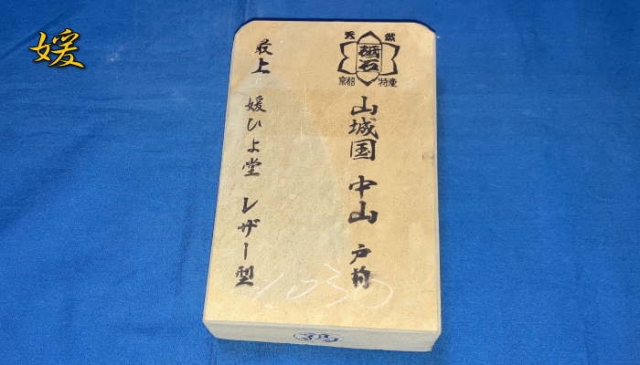 媛
天然
砥石
京都 特産
山城国 中山 戸前
最上 媛ひよ堂 レザー型
1030